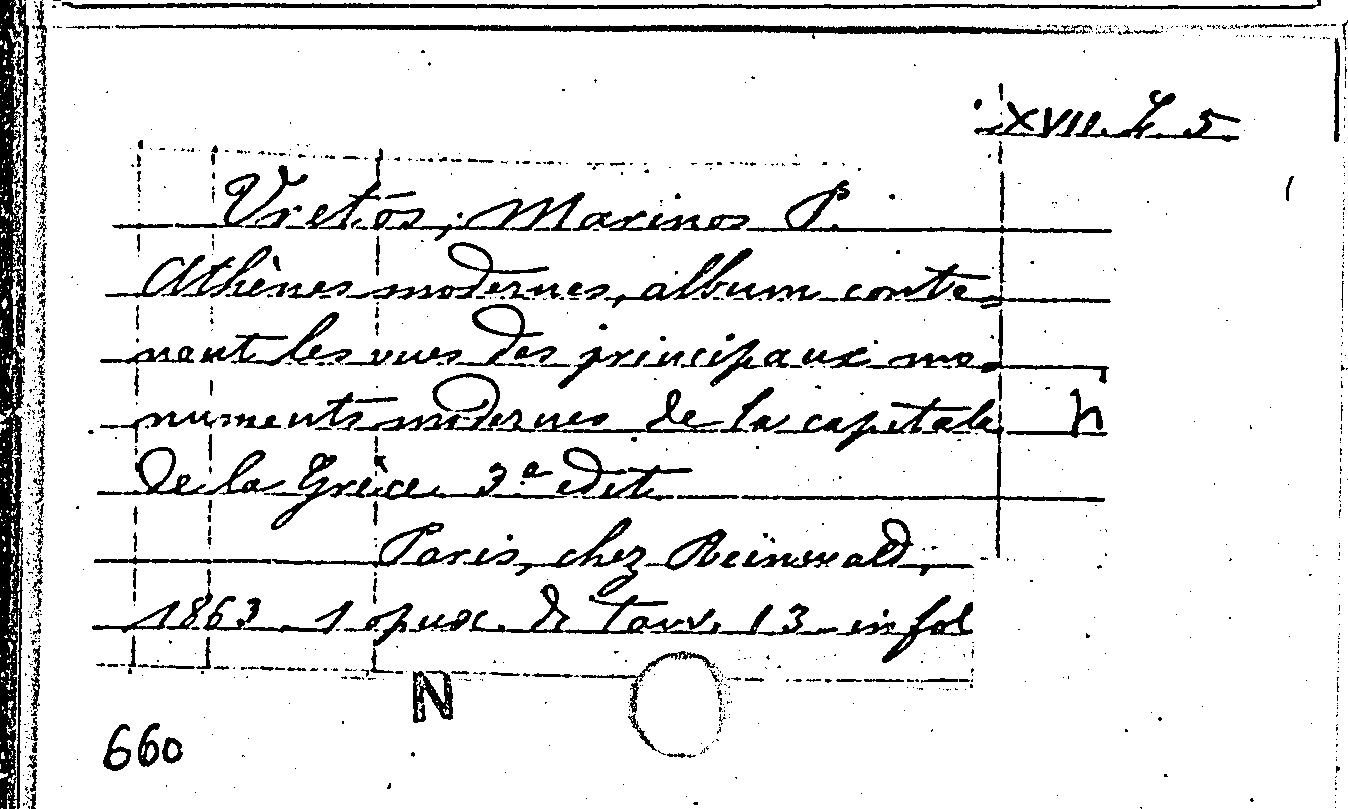 XVII. L. 5
Vretós, Marinos P.
Athènes modernes, album conte=
nant les vues des principaux mo=
numents modernes de la capitale h
de la Grèce. 3ª edit
Paris, chez Reinwald,
1863. 1 opusc. di tavv. 13 in fol
N
660